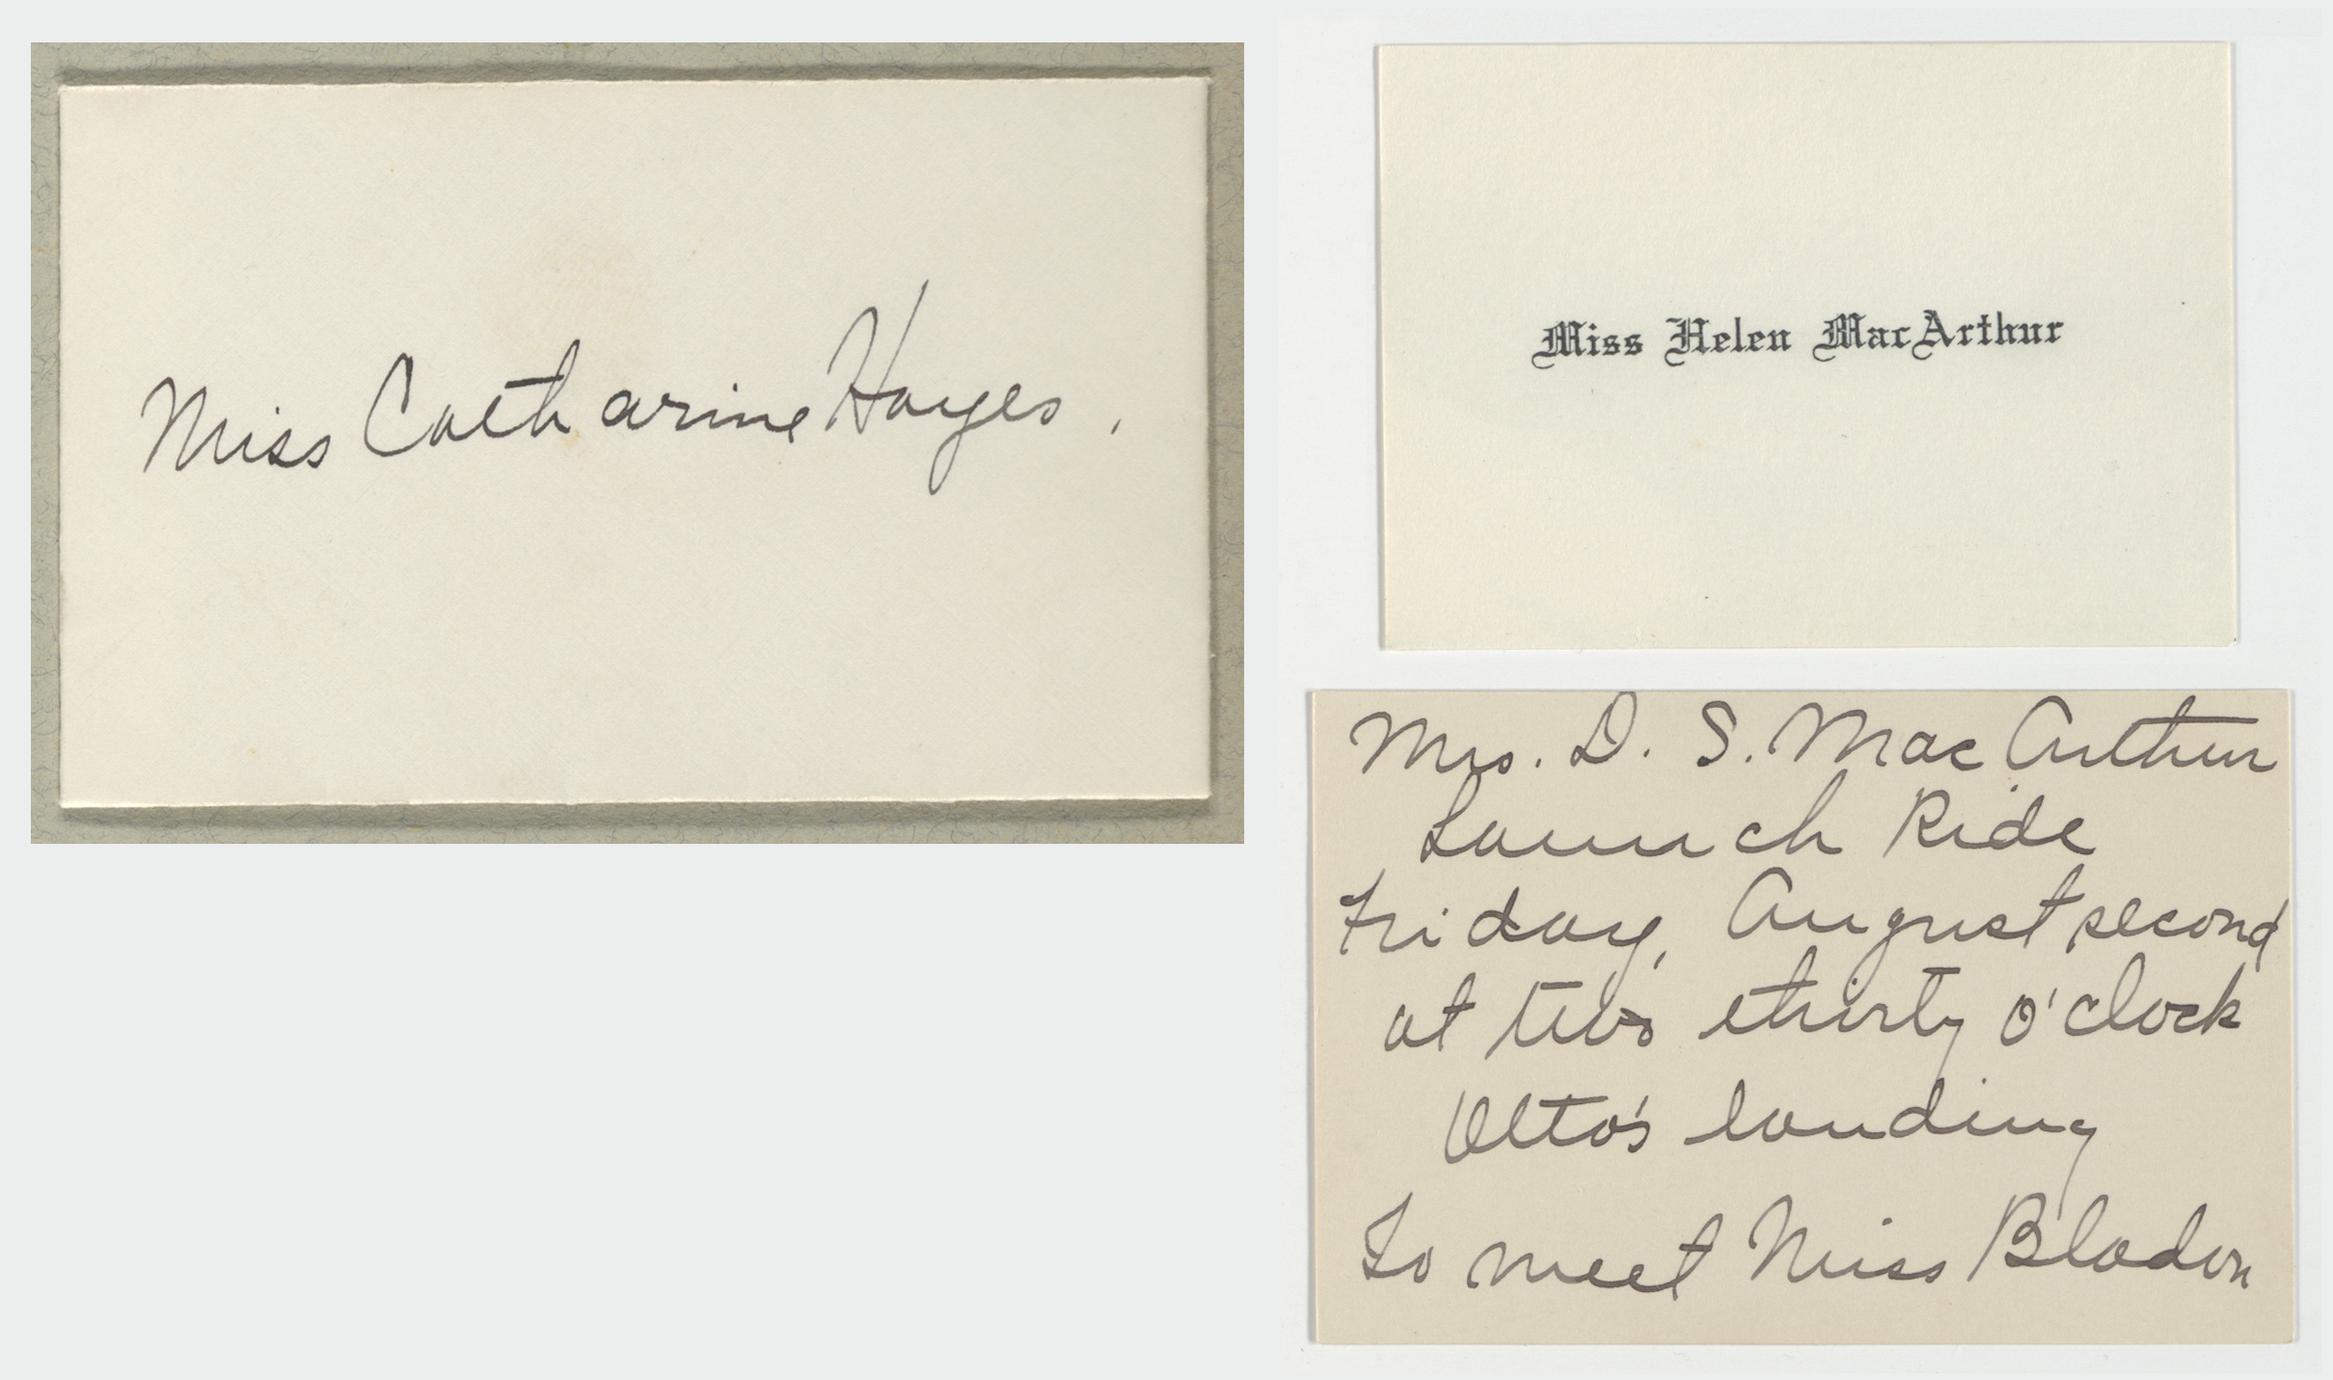 Miss Catharine Hayes.
Miss Helen MacArthur
Mrs. D. S. MacArthur
Launch Ride
Friday, August second
at two thirty o'clock
Otto's landing
To meet Miss Bladon